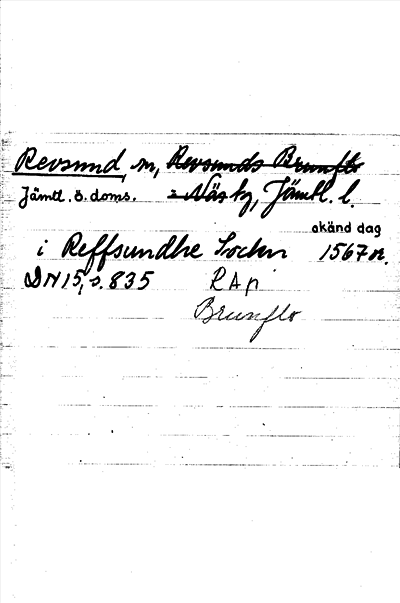 Revsund, sn, Revsunds Brunflo
Jämtl. ö. doms. o Näs tg, Jämtl. l.
okänd dag
i Reffsundhe Sockn 1567 n.
DN 15, s. 835 RAp
Brunflo